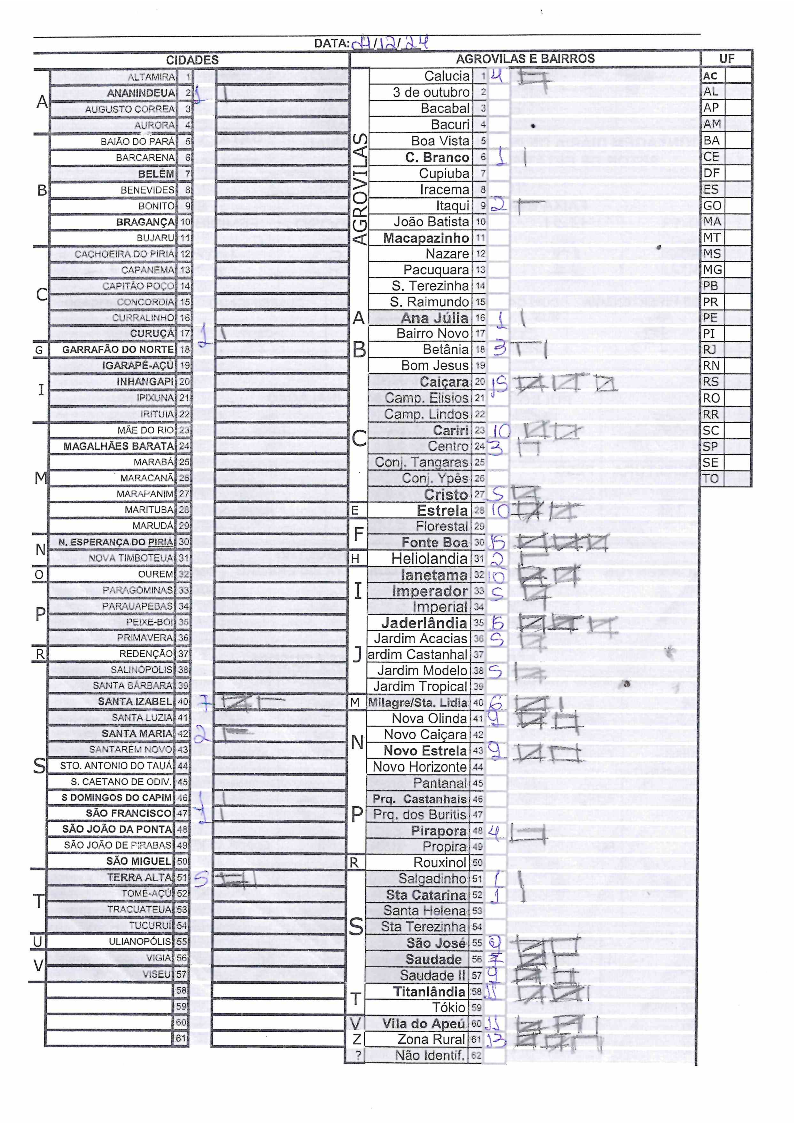 DATA: 07/12/24
CIDADES
A
ALTAMIRA 1
ANANINDEUA 2 1
AUGUSTO CORREA 3
AURORA 4
B
BAIÃO DO PARÁ 5
BARCARENA 6
BELÉM 7
BENEVIDES 8
BONITO 9
BRAGANÇA 10
BUJARU 11
C
CACHOEIRA DO PIRIA 12
CAPANEMA 13
CAPITÃO POÇO 14
CONCORDIA 15
CURRALINHO 16
CURUÇÁ 17 1
G
GARRAFÃO DO NORTE 18
I
IGARAPÉ-AÇÚ 19
INHANGAPI 20
IPIXUNA 21
IRITUIA 22
M
MÃE DO RIO 23
MAGALHÃES BARATA 24
MARABÁ 25
MARACANÃ 26
MARAPANIM 27
MARITUBA 28
MARUDÁ 29
N
N. ESPERANÇA DO PIRIA 30
NOVA TIMBOTEUA 31
O
OUREM 32
P
PARAGOMINAS 33
PARAUAPEBAS 34
PEIXE-BOI 35
PRIMAVERA 36
R
REDENÇÃO 37
S
SALINÓPOLIS 38
SANTA BÁRBARA 39
SANTA IZABEL 40 7
SANTA LUZIA 41
SANTA MARIA 42 2
SANTARÉM NOVO 43
STO. ANTONIO DO TAUÁ 44
S. CAETANO DE ODIV. 45
S DOMINGOS DO CAPIM 46
SÃO FRANCISCO 47 1
SÃO JOÃO DA PONTA 48
SÃO JOÃO DE PIRABAS 49
SÃO MIGUEL 50
T
TERRA ALTA 51 5
TOME-AÇÚ 52
TRACUATEUA 53
TUCURUI 54
U
ULIANOPÓLIS 55
V
VIGIA 56
VISEU 57
58
59
60
61
AGROVILAS E BAIRROS
AGROVILAS
Calucia 1 4
3 de outubro 2
Bacabal 3
Bacuri 4
Boa Vista 5
C. Branco 6 1
Cupiuba 7
Iracema 8
Itaqui 9 2
João Batista 10
Macapazinho 11
Nazare 12
Pacuquara 13
S. Terezinha 14
S. Raimundo 15
A
Ana Júlia 16 1
B
Bairro Novo 17
Betânia 18 3
Bom Jesus 19
C
Caiçara 20 15
Camp. Elisios 21
Camp. Lindos 22
Cariri 23 10
Centro 24 3
Conj. Tangaras 25
Conj. Ypês 26
Cristo 27 5
E
Estrela 28 10
F
Florestal 29
Fonte Boa 30 15
H
Heliolandia 31 2
I
Ianetama 32 10
Imperador 33 5
Imperial 34
J
Jaderlândia 35
Jardim Acacias 36 5
ardim Castanhal 37
Jardim Modelo 38 5
Jardim Tropical 39
M
Milagre/Sta. Lidia 40 6
N
Nova Olinda 41 9
Novo Caiçara 42
Novo Estrela 43 9
Novo Horizonte 44
P
Pantanal 45
Prq. Castanhais 46
Prq. dos Buritis 47
Pirapora 48 4
Propira 49
R
Rouxinol 50
S
Salgadinho 51 1
Sta Catarina 52 1
Santa Helena 53
Sta Terezinha 54
São José 55 9
Saudade 56 7
Saudade II 57 9
T
Titanlândia 58 11
Tókio 59
V
Vila do Apeú 60 11
Z
Zona Rural 61 13
?
Não Identif. 62
UF
AC
AL
AP
AM
BA
CE
DF
ES
GO
MA
MT
MS
MG
PB
PR
PE
PI
RJ
RN
RS
RO
RR
SC
SP
SE
TO